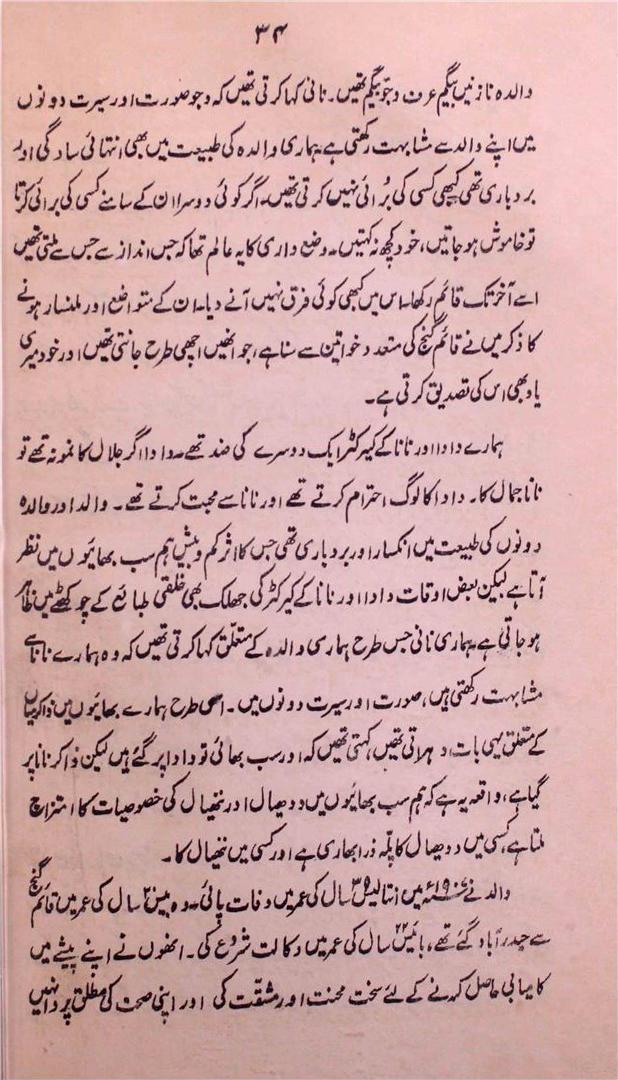 ۳۴
والدہ نازنیں بیگم عرف وجّو بیگم تھیں۔ نانی کہا کرتی تھیں کہ وجو صورت اور سیرت دونوں
میں اپنے والد سے مشابہت رکھتی ہے۔ ہماری والدہ کی طبیعت میں بھی انتہائی سادگی اور
بردباری تھی کبھی کسی کی بُرائی نہیں کرتی تھیں۔ اگر کوئی دوسرا ان کے سامنے کسی کی برائی کرتا
تو خاموش ہو جاتیں، خود کچھ نہ کہتیں۔ وضع داری کا یہ عالم تھا کہ جس انداز سے جس سے ملتی تھیں
اسے آخر تک قائم رکھا۔ اس میں کبھی کوئی فرق نہیں آنے دیا۔ ان کے متواضع اور ملنسار ہونے
کا ذکر میں نے قائم گنج کی متعدد خواتین سے سنا ہے، جو انھیں اچھی طرح جانتی تھیں، اور خود میری
یاد بھی اس کی تصدیق کرتی ہے۔
ہمارے دادا اور نانا کے کیرکٹر ایک دوسرے کی ضد تھے۔ دادا اگر جلال کا نمونہ تھے تو
نانا جمال کا۔ دادا کا لوگ احترام کرتے تھے اور نانا سے محبت کرتے تھے۔ والد اور والدہ
دونوں کی طبیعت میں انکسار اور بردباری تھی جس کا اثر کم و بیش ہم سب بھائیوں میں نظر
آتا ہے لیکن بعض اوقات دادا اور نانا کے کیرکٹر کی جھلک بھی خلقی طبائع کے چوکھٹے میں ظاہر
ہو جاتی ہے۔ ہماری نانی جس طرح ہماری والدہ کے متعلق کہا کرتی تھیں کہ وہ ہمارے نانا سے
مشابہت رکھتی ہیں، صورت اور سیرت دونوں میں۔ اسی طرح ہمارے بھائیوں میں ذاکر میاں
کے متعلق یہی بات دہراتی تھیں، کہتی تھیں کہ اور سب بھائی تو دادا پر گئے ہیں لیکن ذاکر نانا پر
گیا ہے، واقعہ یہ ہے کہ ہم سب بھائیوں میں ددھیال اور ننھیال کی خصوصیات کا امتزاج
ملتا ہے، کسی میں ددھیال کا پلّہ ذرا بھاری ہے اور کسی میں ننھیال کا۔
والد نے ۱۹۰۷ء میں انتالیس ۳۹ سال کی عمر میں وفات پائی۔ وہ بیس ۲۰ سال کی عمر میں قائم گنج
سے حیدرآباد گئے تھے، بائیس ۲۲ سال کی عمر میں وکالت شروع کی۔ انھوں نے اپنے پیشے میں
کامیابی حاصل کرنے کے لئے سخت محنت اور مشقّت کی اور اپنی صحت کی مطلق پروا نہیں